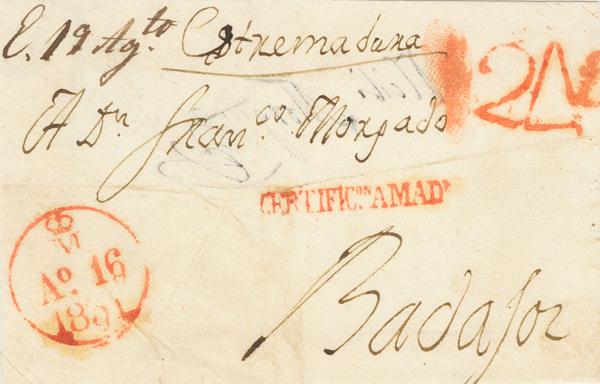 E. 19 Ag.to Estremadura
24
A Dn Fran.co Morgado
CERTIFIC.on AMAD
M
Ao. 16
1831
Badajoz